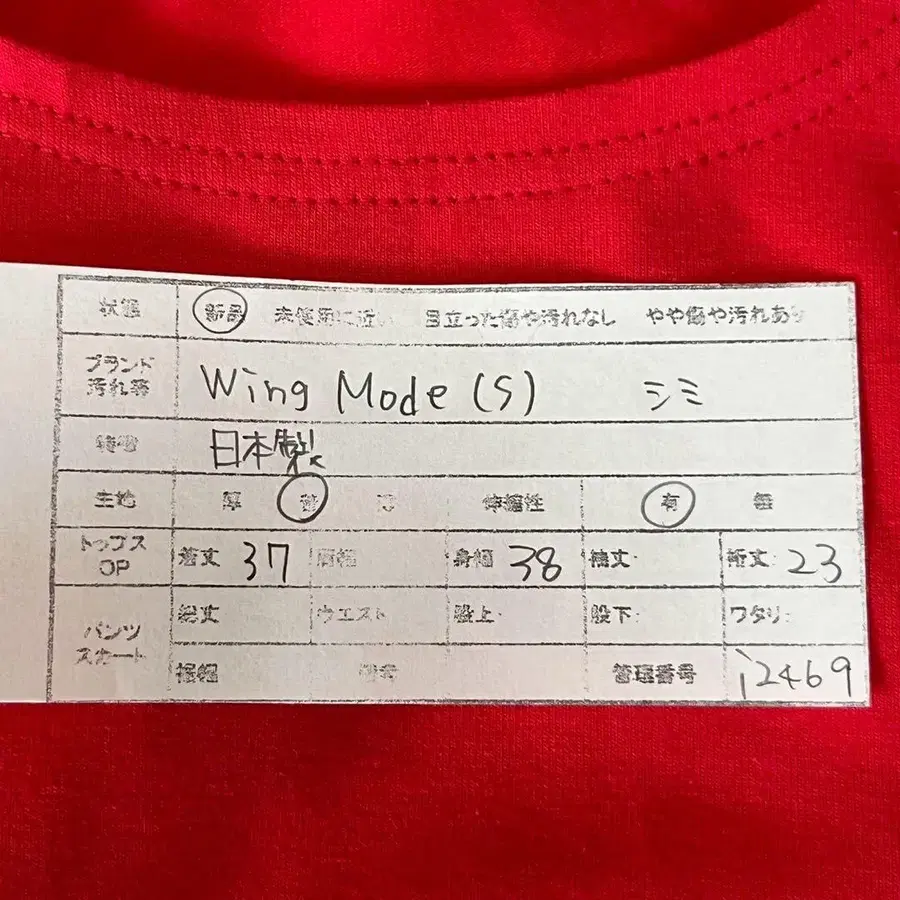 状態 新品 未使用に近い 目立った傷や汚れなし やや傷や汚れあり
ブランド
汚れ等 Wing Mode (S) シミ
特徴 日本製
生地 厚 普 薄 伸縮性 有 無
トップス
OP 着丈 37 肩幅 身幅 38 袖丈: 裄丈: 23
パンツ
スカート 総丈 ウエスト 股上: 股下: ワタリ:
裾幅 備考 管理番号 i2469